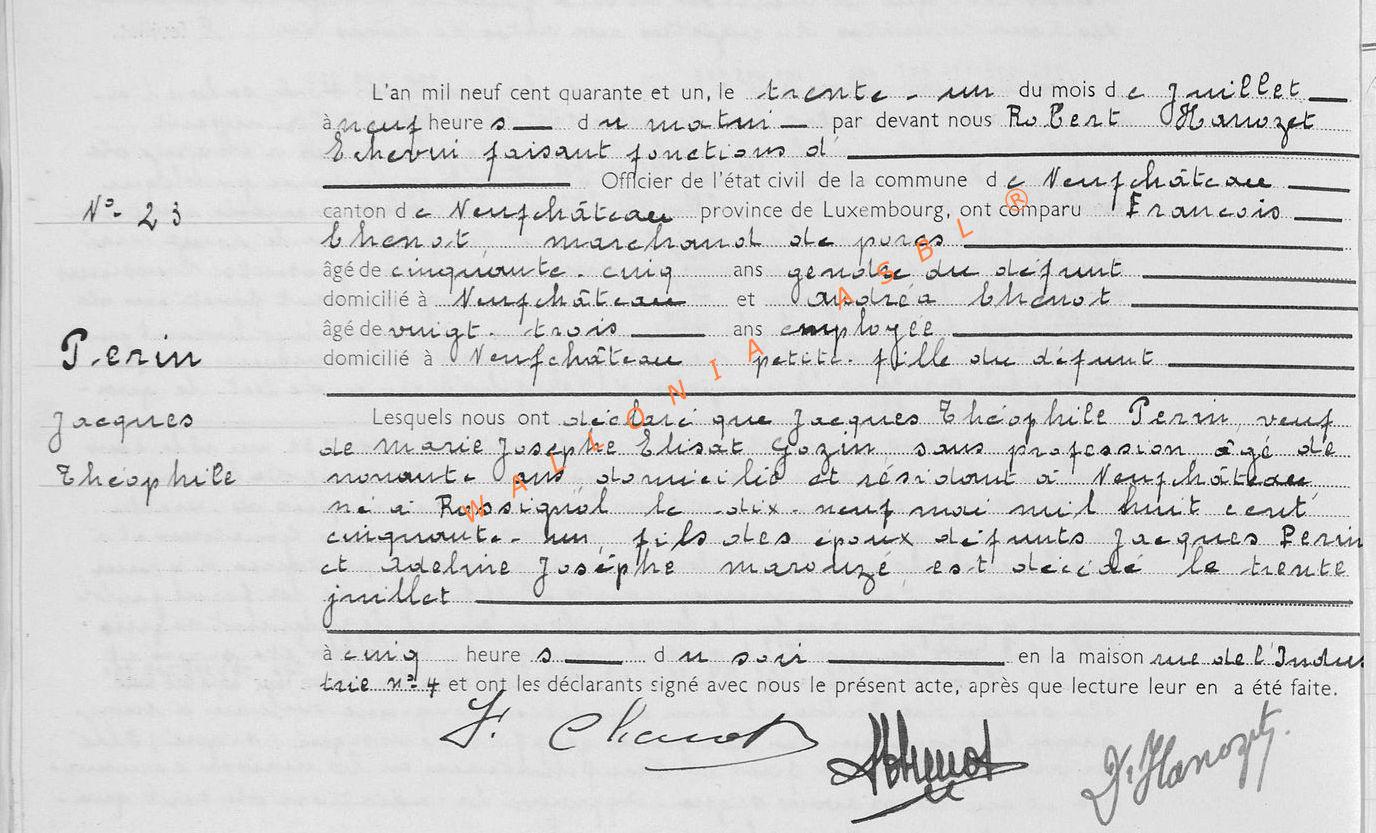 L'an mil neuf cent quarante et un, le trente-un du mois de Juillet
à neuf heures du matin par devant nous Robert Hanozet
Echevin faisant fonctions d'
Officier de l'état civil de la commune de Neufchâteau
N° 23
canton de Neufchâteau province de Luxembourg, ont comparu François
Chenot, marchand de porcs
âgé de cinquante-cinq ans gendre du défunt
domicilié à Neufchâteau et Andréa Chenot
âgé de vingt-trois ans employée
Perin
domicilié à Neufchâteau petite-fille du défunt
Jacques
Lesquels nous ont déclaré que Jacques Théophile Perin, veuf
de Marie Josephe Elisat Gozin, sans profession âgé de
Théophile
nonante ans, domicilié et résidant à Neufchâteau,
né à Rossignol le dix-neuf mai mil huit cent
cinquante-un, fils des époux défunts Jacques Perin
et Adeline Joséphe Marouzé est décédé le trente
juillet
à cinq heures du soir en la maison rue de l'Indus
trie n° 4 et ont les déclarants signé avec nous le présent acte, après que lecture leur en a été faite.
F. Chenot AChenot Hanozet.
WALLONIA ASBL ®